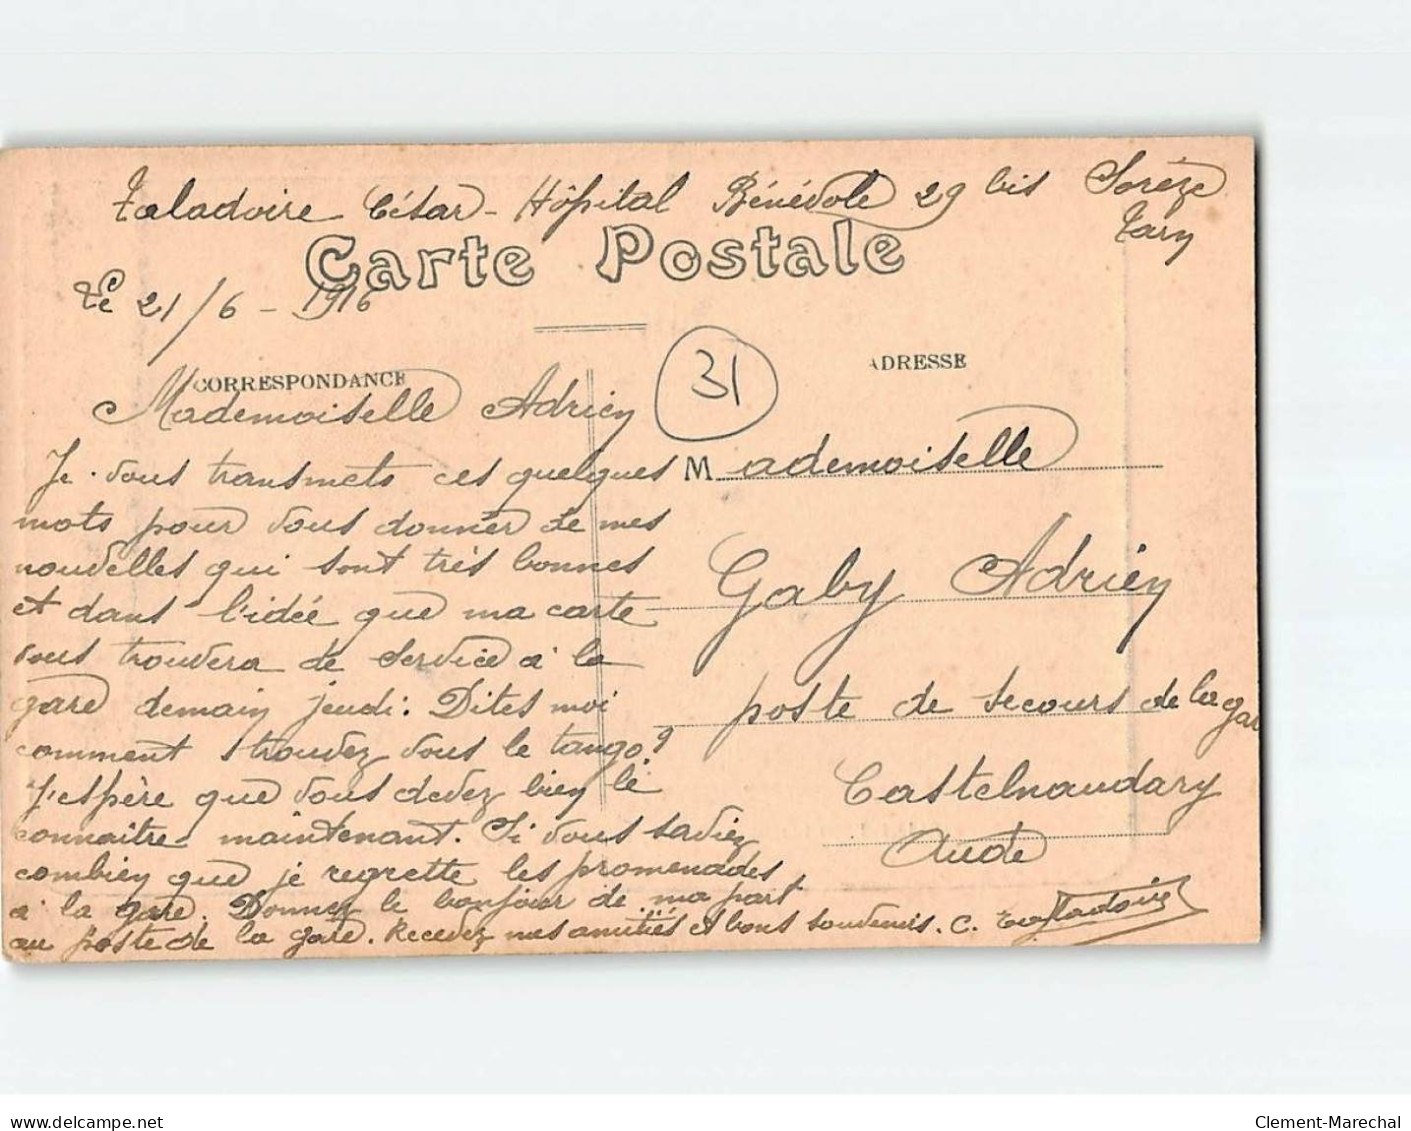 Taladoire César - Hôpital Bénévole 29 bis Sorèze
Tarn
Carte Postale
Le 21/6 - 1916
CORRESPONDANCE
Mademoiselle Adrien
Je vous transmets ces quelques
mots pour vous donner de mes
nouvelles qui sont très bonnes
et dans l'idée que ma carte
vous trouvera de service à la
gare demain jeudi. Dites moi
comment trouvez vous le tango?
J'espère que vous devez bien le
connaitre maintenant. Si vous saviez
combien que je regrette les promenades
à la gare. Donnez le bonjour de ma part
au poste de la gare. Recevez mes amitiés et bons souvenirs. C. Taladoire
31
ADRESSE
Mademoiselle
Gaby Adrien
poste de secours de la gar
Castelnaudary
Aude
delcampe.net
Clement-Marechal